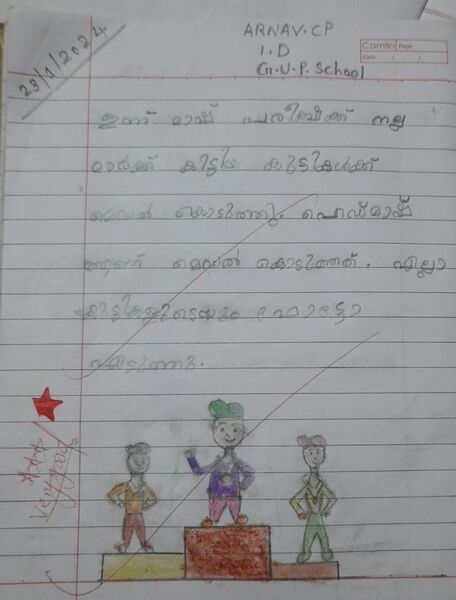 23/1/2024
ARNAV.CP
1.D
G.U.P. School
Camlin Page
Date: / /
ഇന്ന് മാഷ് പരീക്ഷക്ക് നല്ല
മാർക്ക് കിട്ടിയ കുട്ടികൾക്ക്
മെഡൽ കൊടുത്തു. ഹെഡ്മാഷ്
ആണ് മെഡൽ കൊടുത്തത്. എല്ലാ
കുട്ടികളുടെയും ഫോട്ടോ
എടുത്തു.
Very good